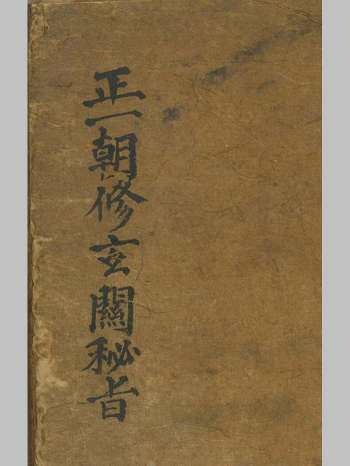 正一朝修玄關秘旨